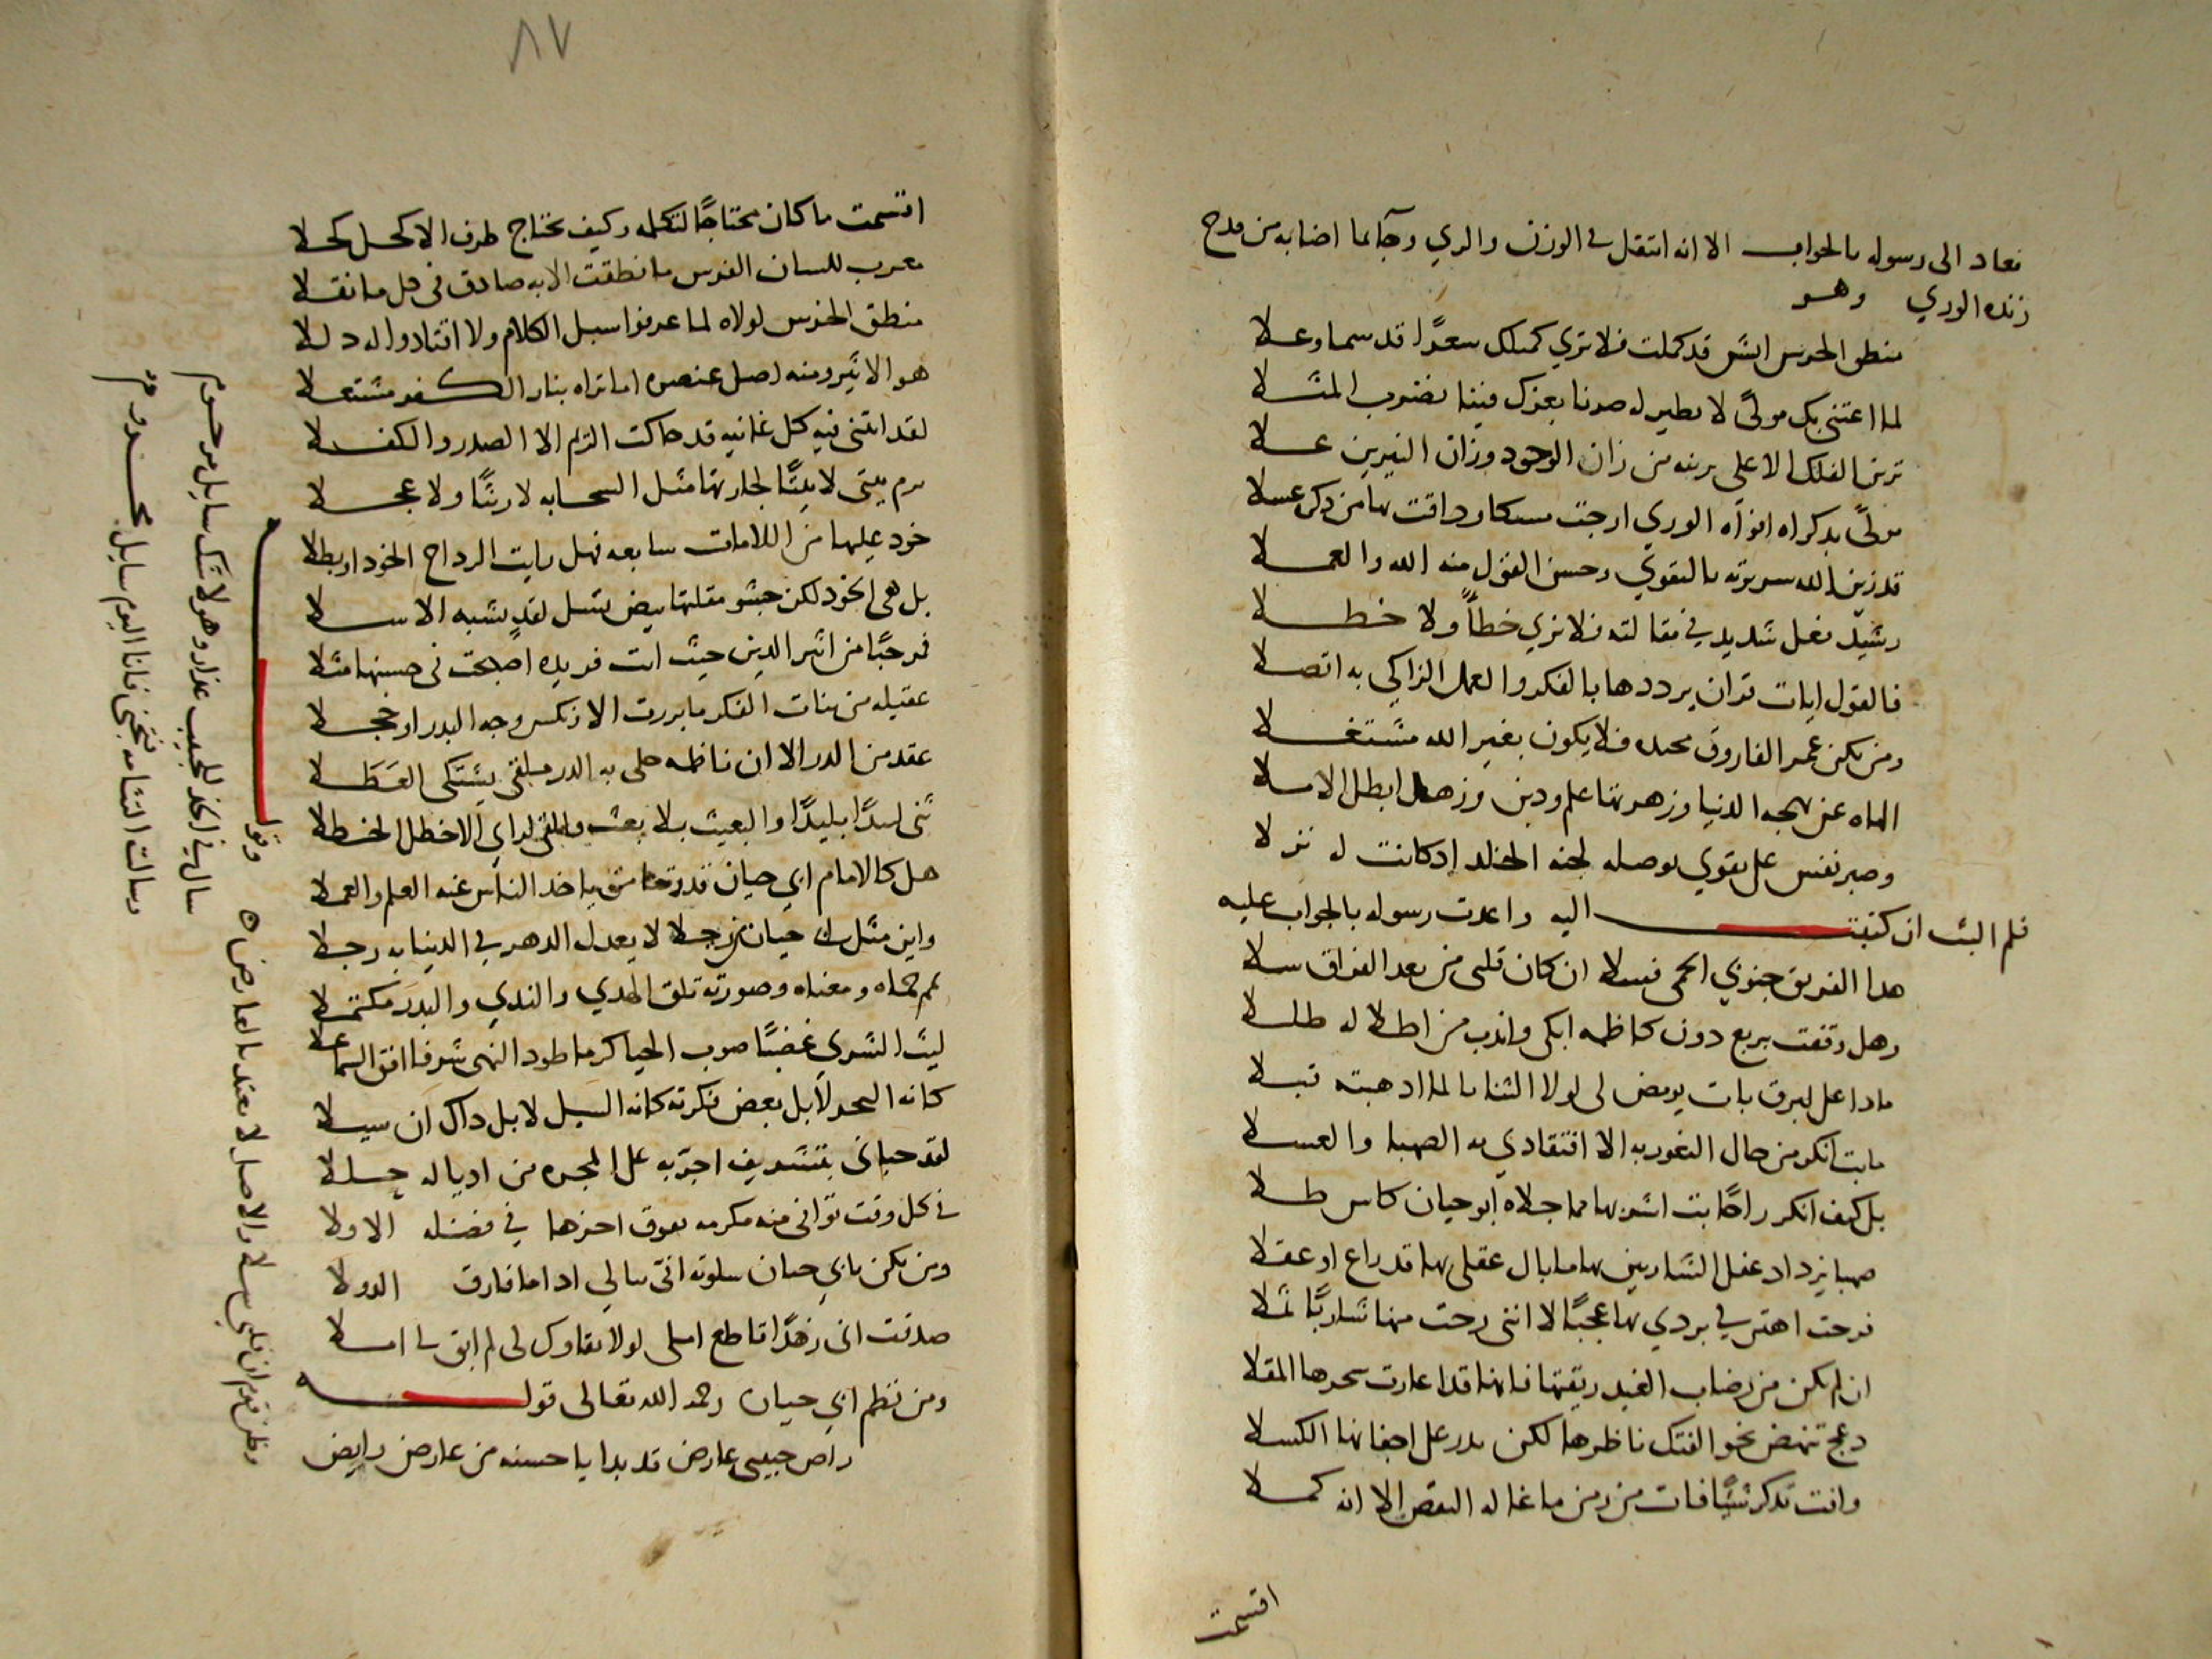 فعاد الى رسوله بالجواب الا انه انتقل في الوزن والروي وجآ بما اضا به من مدح
زنده الوري وهو
منطق الخرس البشر قد كملت فلا تري كمثلك سعدًا قد سما وعلا
لما اعتنى بك مولىً لا نطير له صرنا بعزك فيننا نضرب المثلا
ترين الفلك الاعلى برينه من زان الوجود وزان النيرين علا
مولىً بذكراه افواه الوري ارجت مسكا وذاقت بها من ذكره عسلا
قد زين الله سريرته بالتقوي وحسن القول منه الله والعملا
رشيد فعل شديد في مقالته فلا تري خطأً ولا خطلا
فالقول ايات قران يرددها بالفكر والعمل الزاكي به اتصلا
ومن يكن عمر الفاروق محتده فلا يكون بغير الله مشتغلا
الهاه عن بهجه الدنيا وزهرتها علم ودين وزهد ابطل الاملا
وصبر نفس على تقوي توصله لجنه الخلد اذ كانت له نزلا
فلم البث ان كتبت اليه واعدت رسوله بالجواب عليه
هذا الفريق جنوبي الحمى فسلا ان كان قلبي من بعد الفراق سلا
وهل وقفت بربع دون كاظمه ابكي واندب من اطلاله طللا
ماذا على لبرق بات يومض لي لولا الثنايا لما اذهبته قبلا
ما بت انكر من حال الثغور به الا افتقادي به الصهبا والعسلا
بل كيف انكر راحًا بت اشربها مما جلاه ابو حيان كاس طلا
صهبا يزداد عقل الشاربين بها ما بال عقلي بها قد راع او عقلا
فرحت اهتز في بردي بها عجبًا لا انني رحت منها شاربًا ثملا
ان لم يكن من رضاب الغيد ريقتها فانها قد اعارت سحرها المقلا
دعج تنهض نحو الفتك ناظرها لكن يدر على اجفانها الكسلا
وانت تذكر شيًّا فات من زمن ما غاله النقص الا انه كملا
اقسمت
٨٧
اقسمت ما كان محتاجًا لتكمله وكيف يحتاج طرف الاكحل كحلا
معرب للسان الفرس ما نطقت الا به صادق في كل ما نقلا
منطق الخرس لولاه لما عرفوا سبل الكلام ولا اقتادوا له دللا
هو الاثير ومنه اصل عنصره اما تراه بنار الكفر مشتعلا
لقد اتتني فيه كل غانيه قد حاكت الريم الا الصدر والكفلا
ريم يبتى لا بيتًا لجارتها مثل السحابه لا ريثًا ولا عجلا
خود عليها من اللامات سابعه فهل رايت الرداح الخود او بطلا
بل هي الخود لكن حشو مقلتها بيض تسل لقد يشبه الاسلا
مرحبًا من اثير الدين حيث ات فريده اصبحت في حسنها مثلا
عقيله من بنات الفكر ما بررت الا ونكس وجه البدر او خجلا
عقد من الدر الا ان ناظمه حلى به الدر مبلقى يشتكى العَطَلا
ثنى لبيدًا بليدًا والبعيث بلا بعث والفى لداي الاخطل الخطلا
هل كالامام ابي حيان قدوتنا من ياخذ الناس عنه العلم والعملا
واين مثل حيان رجلا لا يعدل الدهر في الدنيا به رجلا
يمم حماه ومغناه وصورته تلق الهدي والندي والبدر مكتملا
ليث الشري غضبًا صوب الحيا كرما طود النهى شرفا افق السما علا
كانه البحر لا بل بعض فكرته كانه السيل لا بل ذاك ان سيلا
لقد حباني بتشريف اجرّ به على المجره من اذياله حللا
في كل وقت توافى منه مكرمه يفوق اخرها في فضله الاولا
ومن يكن بابي حيان سلوته انى يبالي اذا ما فارق الدولا
صدقت اني زهدًا قاطع املى لولا بقاوك لي لم ابق لي املا
ومن نظم ابي حيان رحمه الله تعالى قوله
راض حبيبي عارض قد بدا يا حسنه من عارض رايض
وظن قوم ان قلبي سلا والاصل لا يعتد بالعارض
وقوله
سال في الخد للحبيب عذار وهو لا شك سايل مرحوم
وسالت التثامه فتجنى فانا اليوم سايل محروم